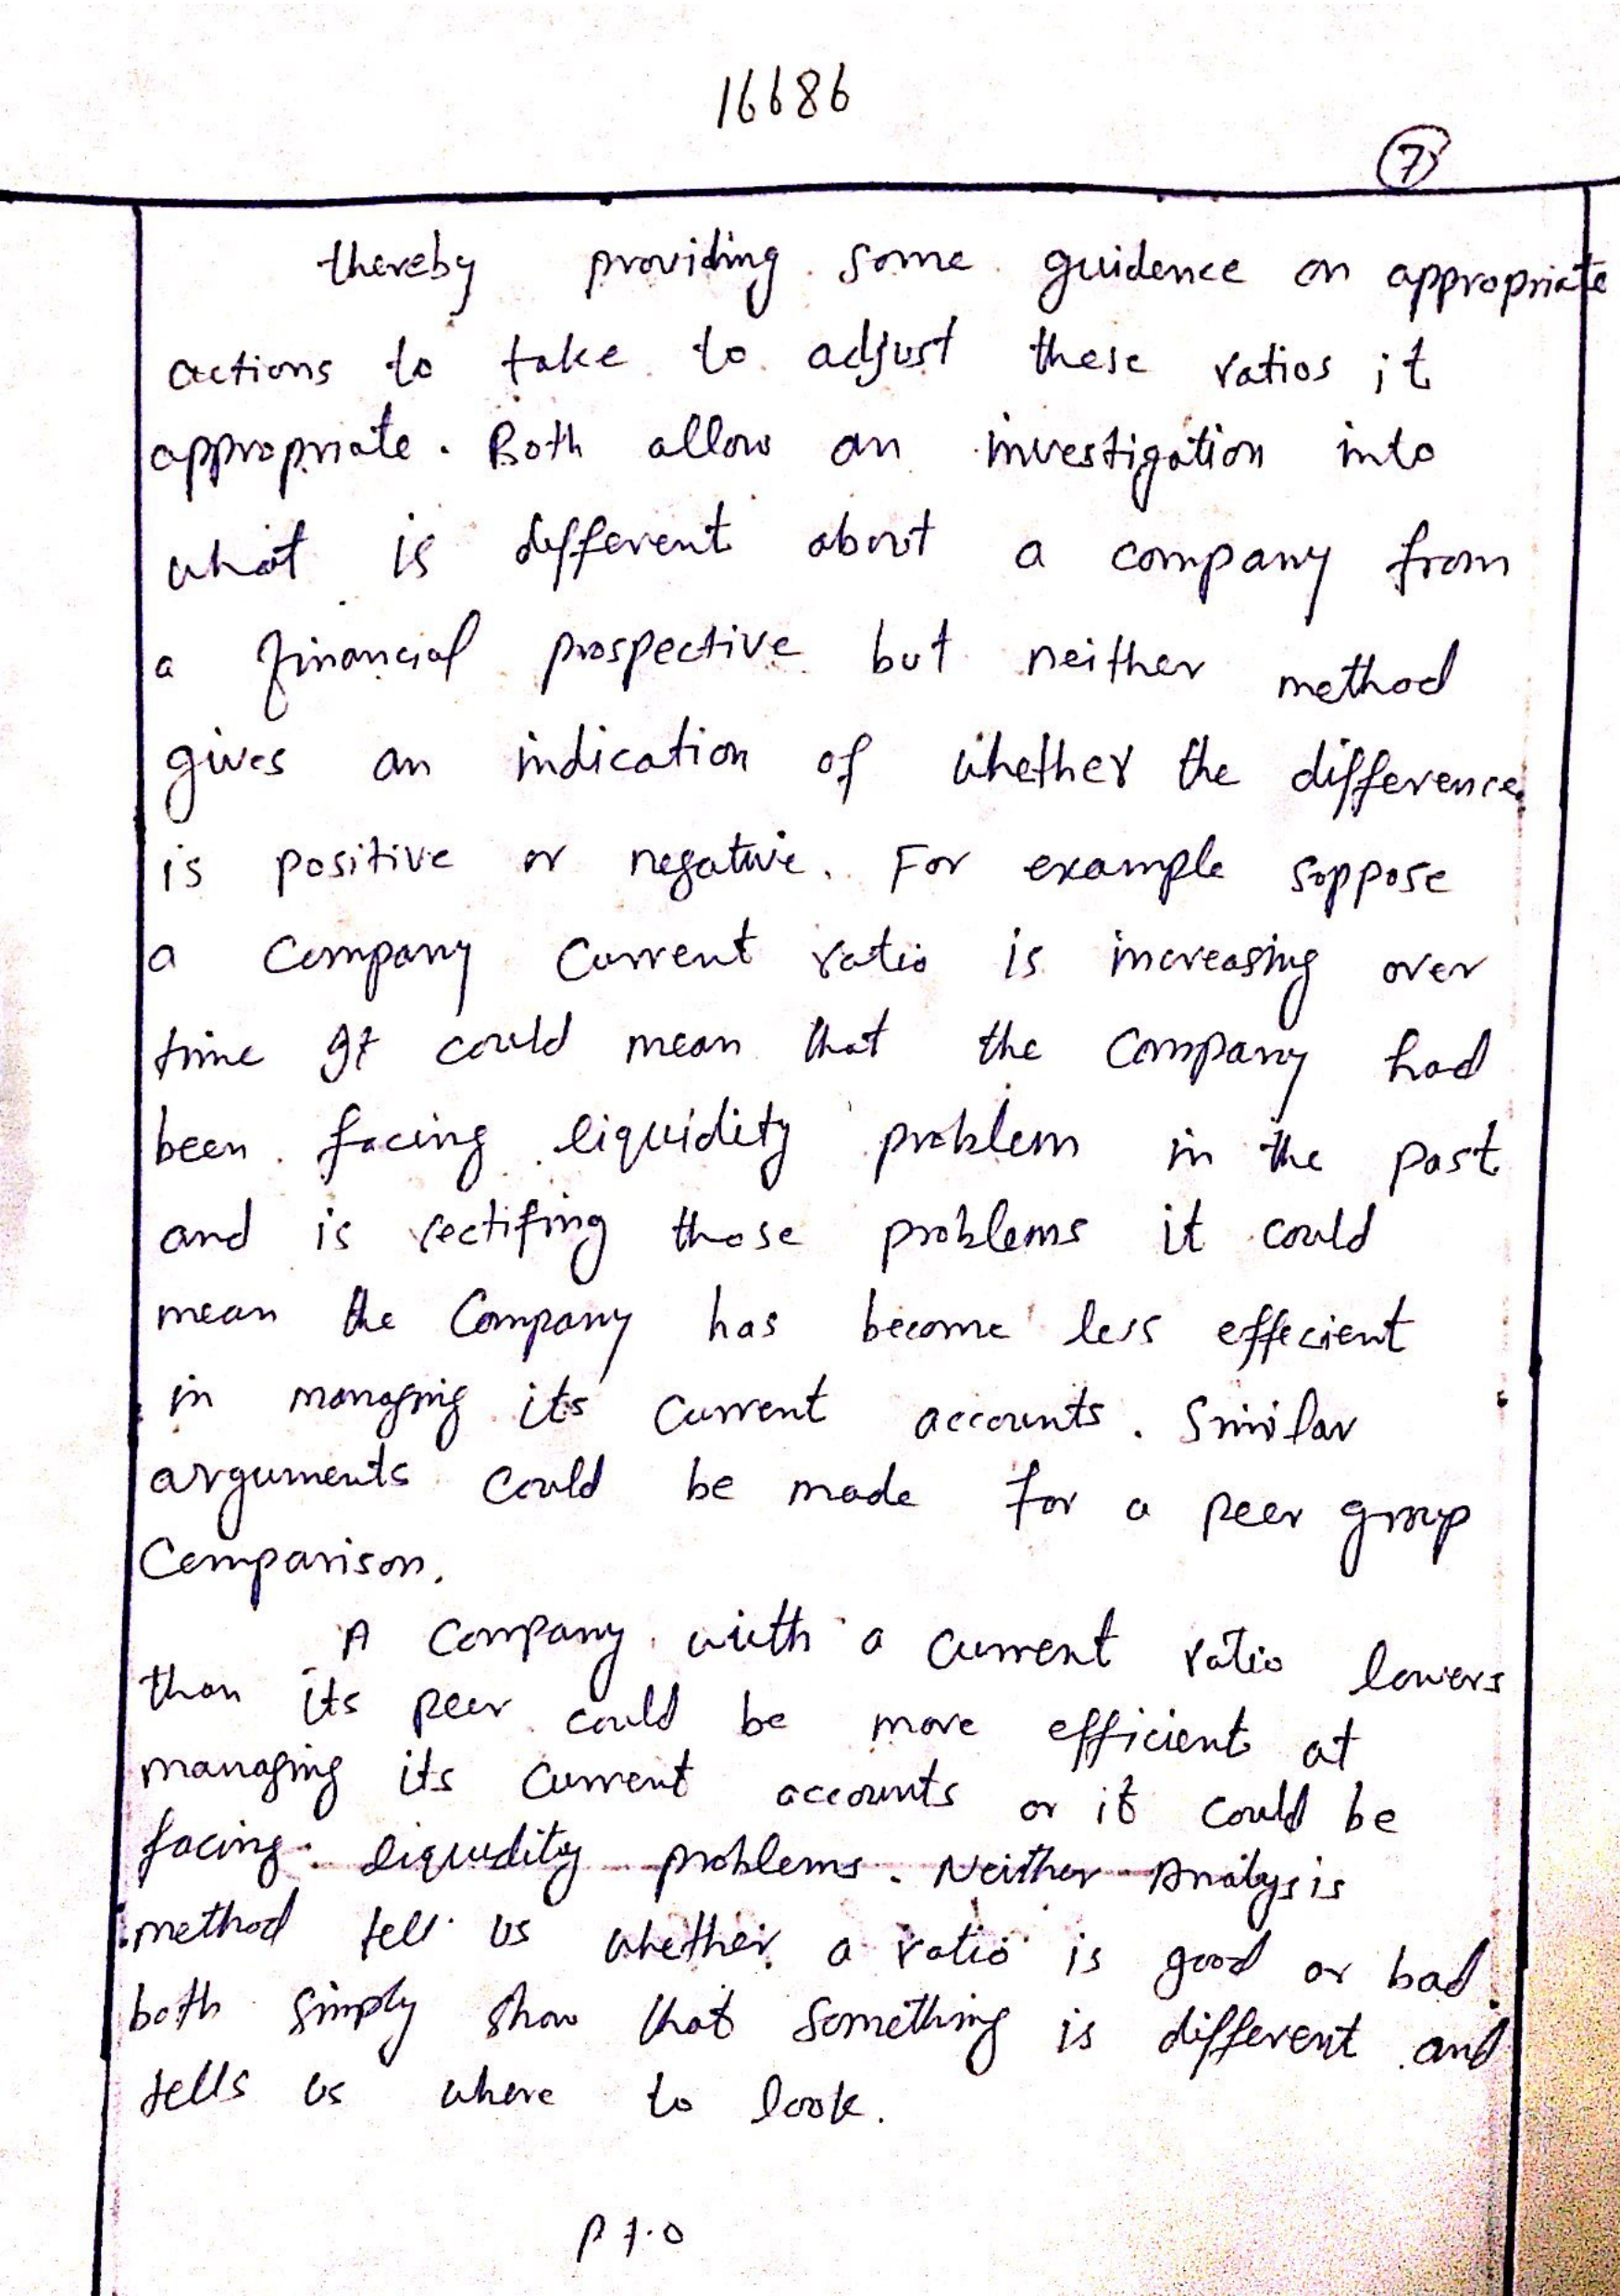 16686
7
thereby providing some guidence on appropriate
actions to take to adjust these ratios it
appropriate. Both allow an investigation into
what is different about a company from
a financial prospective but neither method
gives an indication of whether the difference
is positive or negative. For example soppose
a Company Current ratio is increasing over
time It could mean that the Company had
been facing liquidity problem in the past
and is rectifing those problems it could
mean the Company has become less effecient
in managing its Current accounts. Similar
arguments Could be made for a peer group
Comparison.
A Company with a Current ratio lowers
than its peer could be more efficient at
managing its Current accounts or it could be
facing liquidity problems. Neither Analysis
method tell us whether a ratio is good or bad.
both simply show that Something is different and
tells us where to look.
P T.O